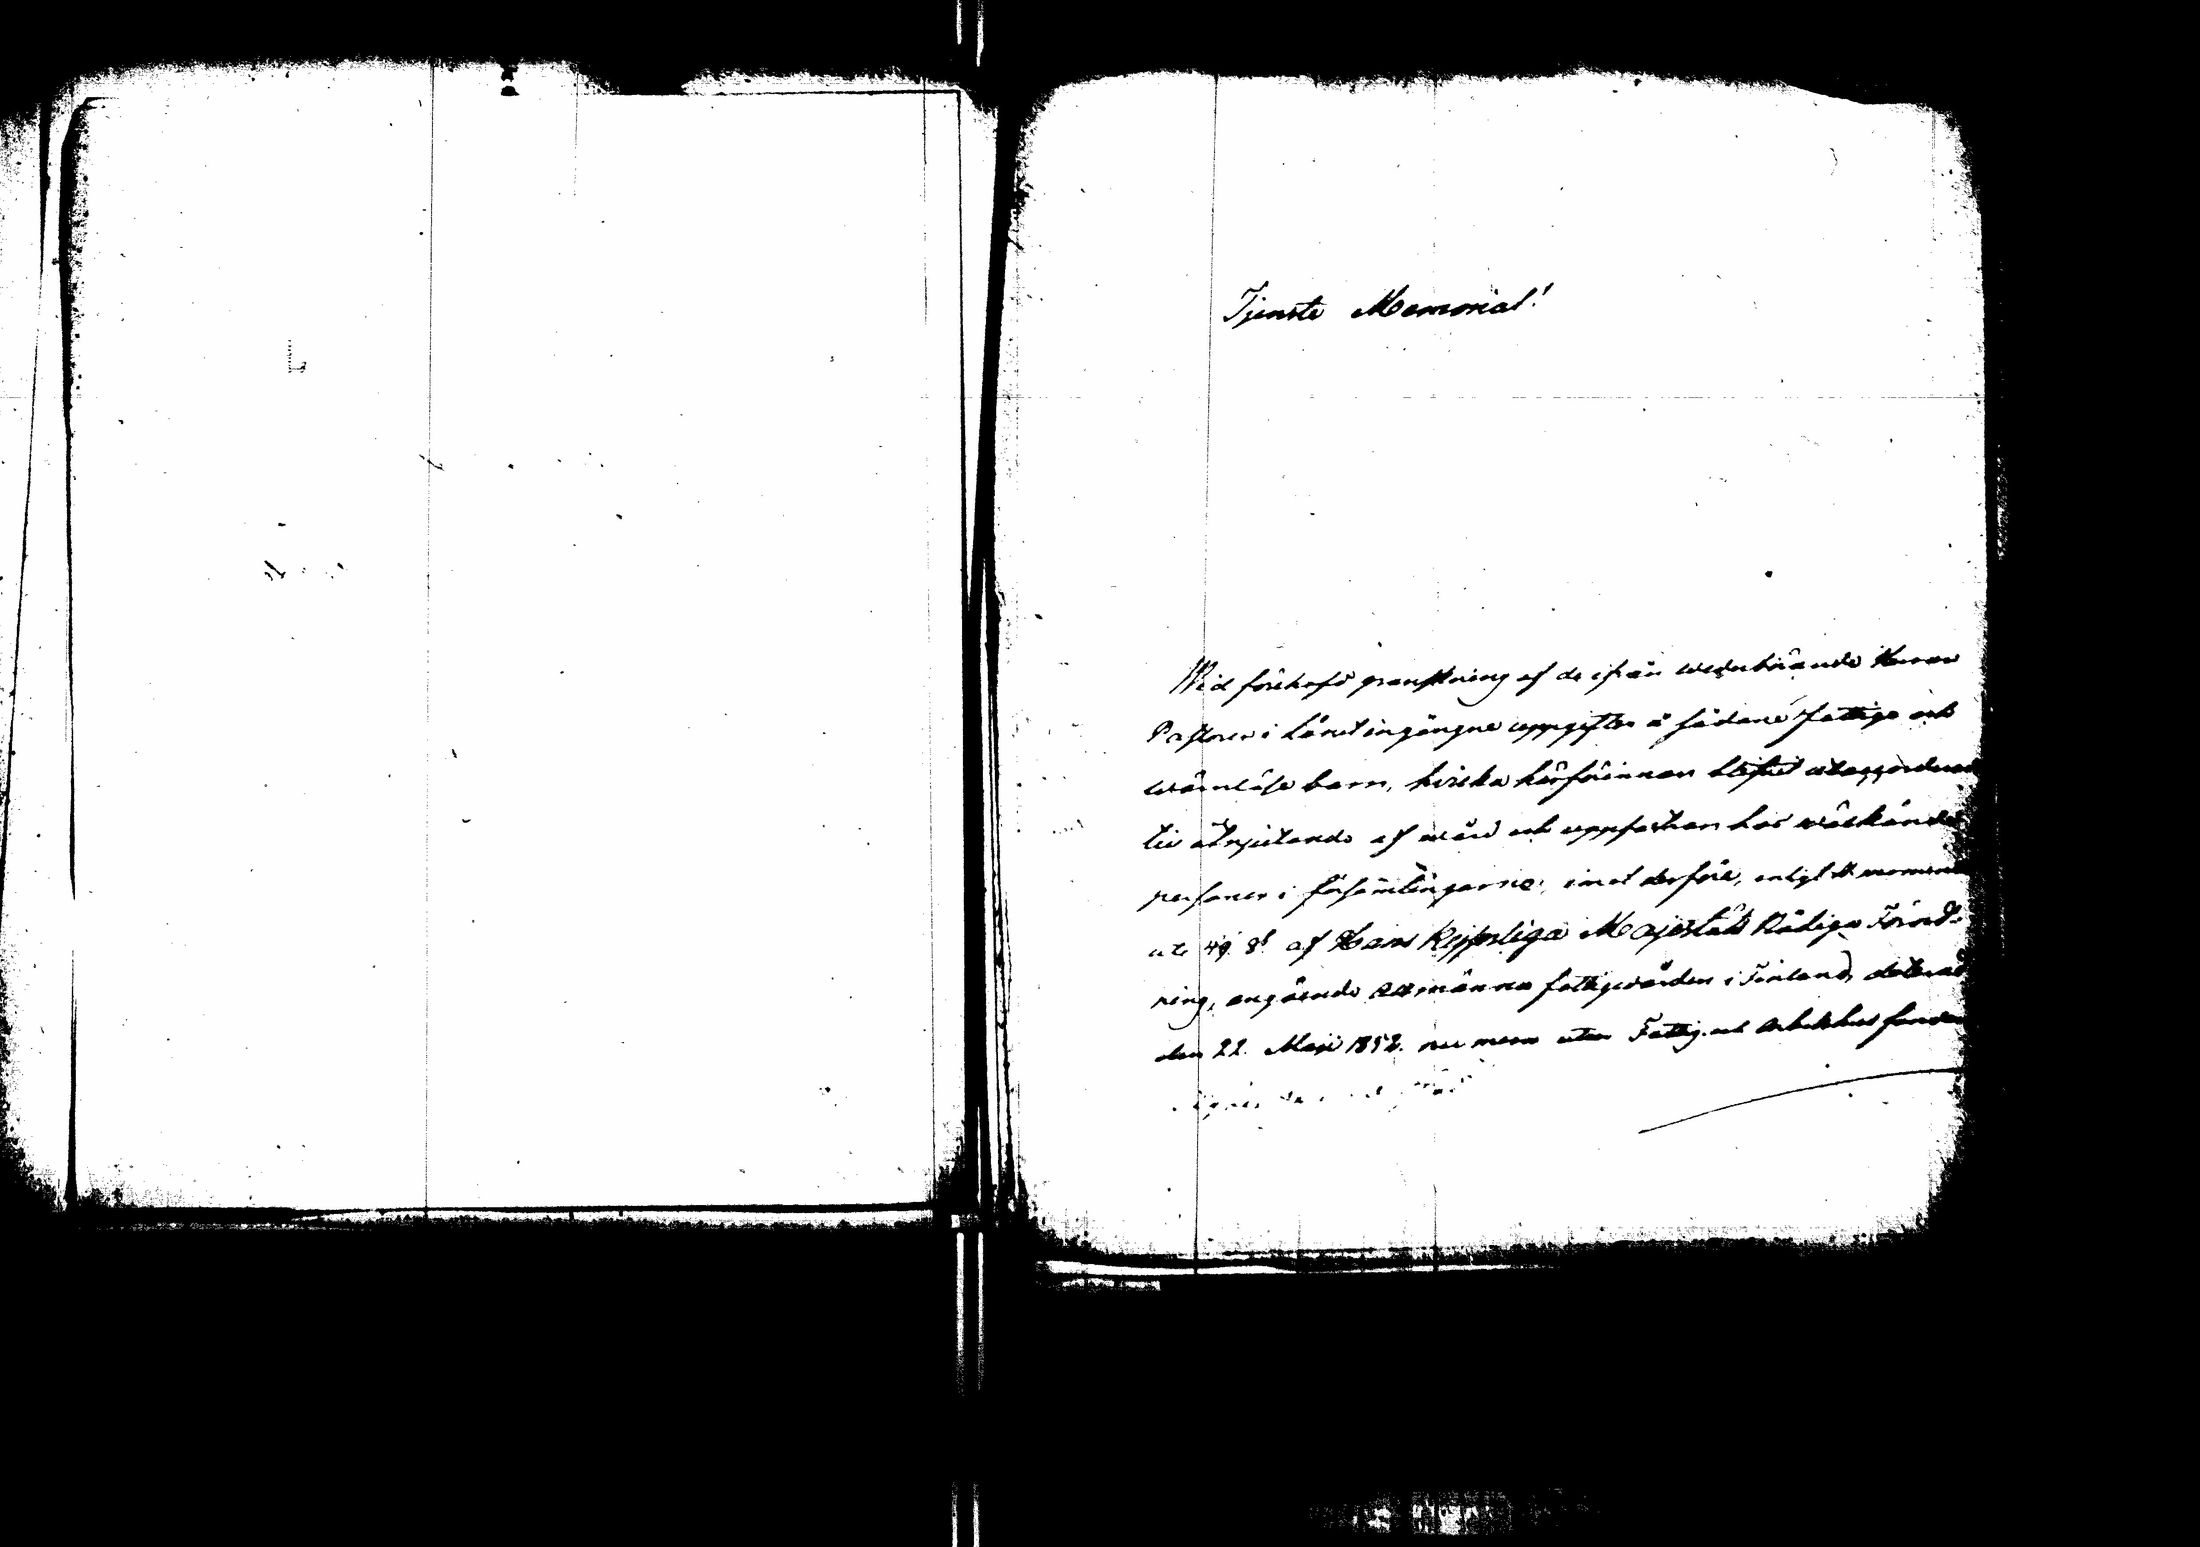 Tjenste Memorial!
Wid förehafd granskning af de ifrån wederbörande Herrar
Pastorer i Länet ingångne uppgifter å sådane fattige och
wärnlöse barn, hvilka härförinnan blifvit utackorderade
till åtnjutande af wård och uppfostran hos wälkände
personer i församlingarne; emot derföre, enligt momentet
ute 49 § af Hans Kejserliga Majestäts Nådiga Förord-
ning, angående allmänna fattigwården i Finland, daterad
den 22 Mars 1852. nu mera utur Fattig- och Arbetshus fonden